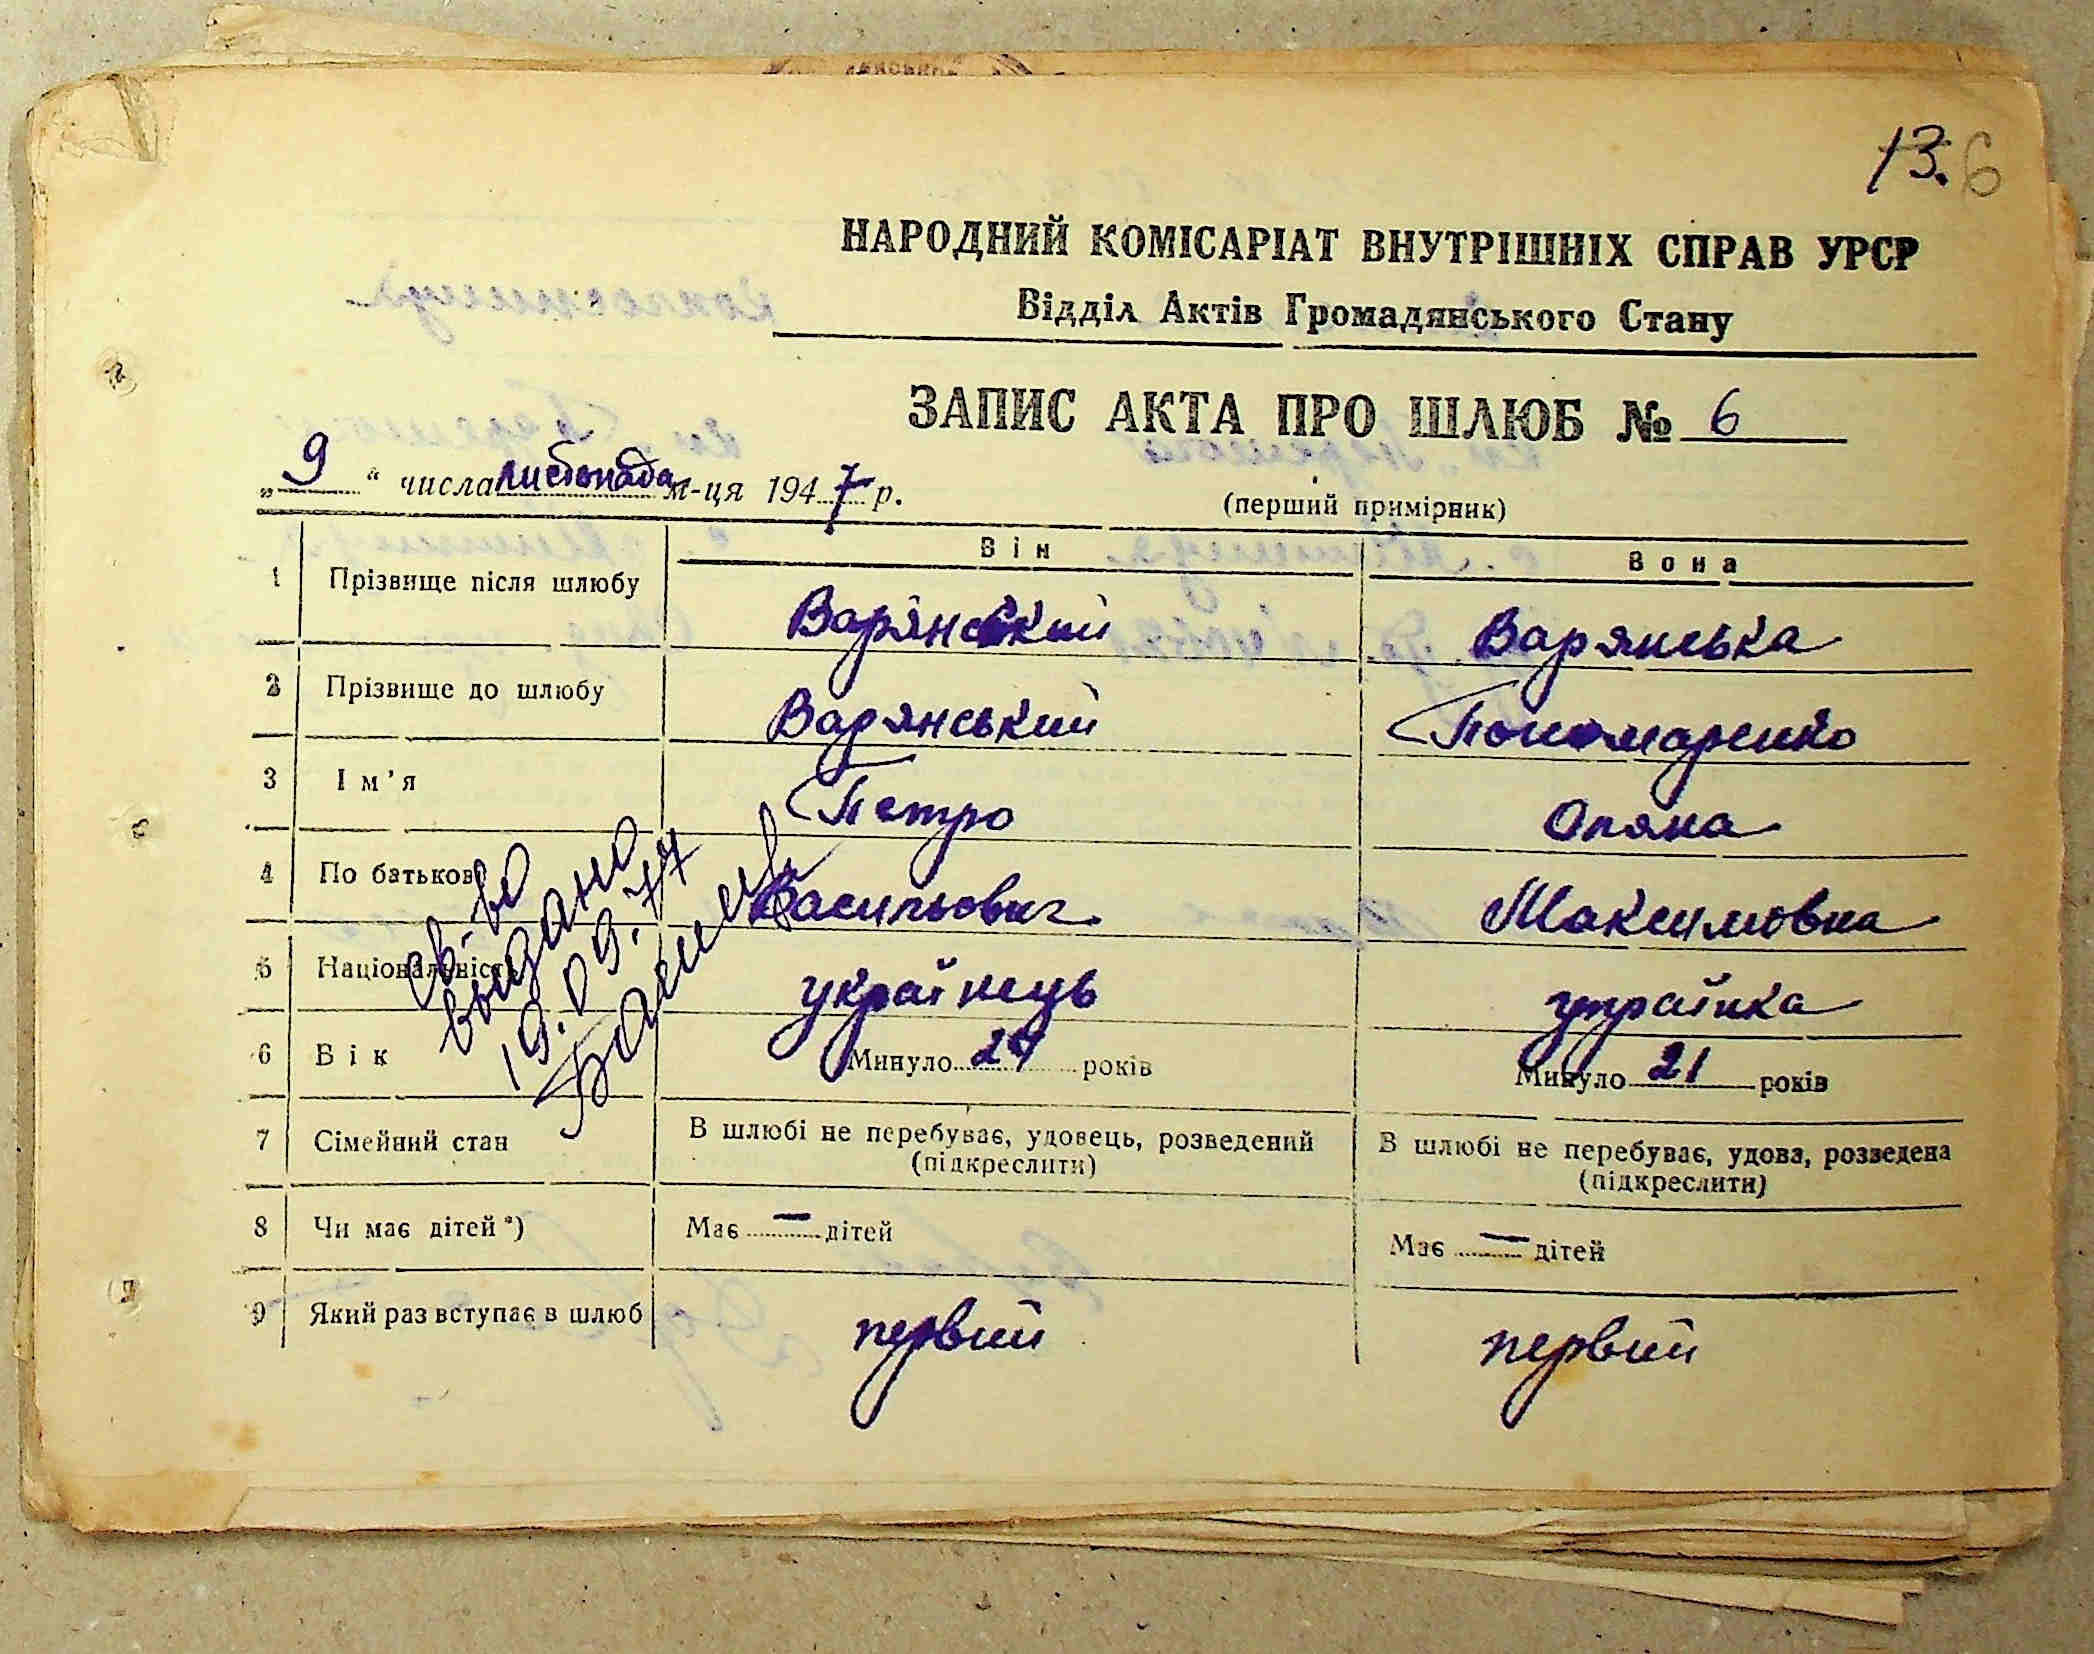 13. 6
НАРОДНИЙ КОМІСАРІАТ ВНУТРІШНІХ СПРАВ УРСР
Відділ Актів Громадянського Стану
ЗАПИС АКТА ПРО ШЛЮБ № 6
„ 9 “ числа листопада м-ця 1947 р.
(перший примірник)
Він Вона
1 Прізвище після шлюбу Варянський Варянська
2 Прізвище до шлюбу Варянський Пономаренко
3 Ім'я Петро Оляна
4 По батькові Васильович Максимовна
5 Національність українець українка
6 Вік Минуло 24 років Минуло 21 років
7 Сімейний стан В шлюбі не перебуває, удовець, розведений (підкреслити) В шлюбі не перебуває, удова, розведена (підкреслити)
8 Чи має дітей*) Має — дітей Має — дітей
9 Який раз вступає в шлюб первий первий
св-во
выдано
19.09.77